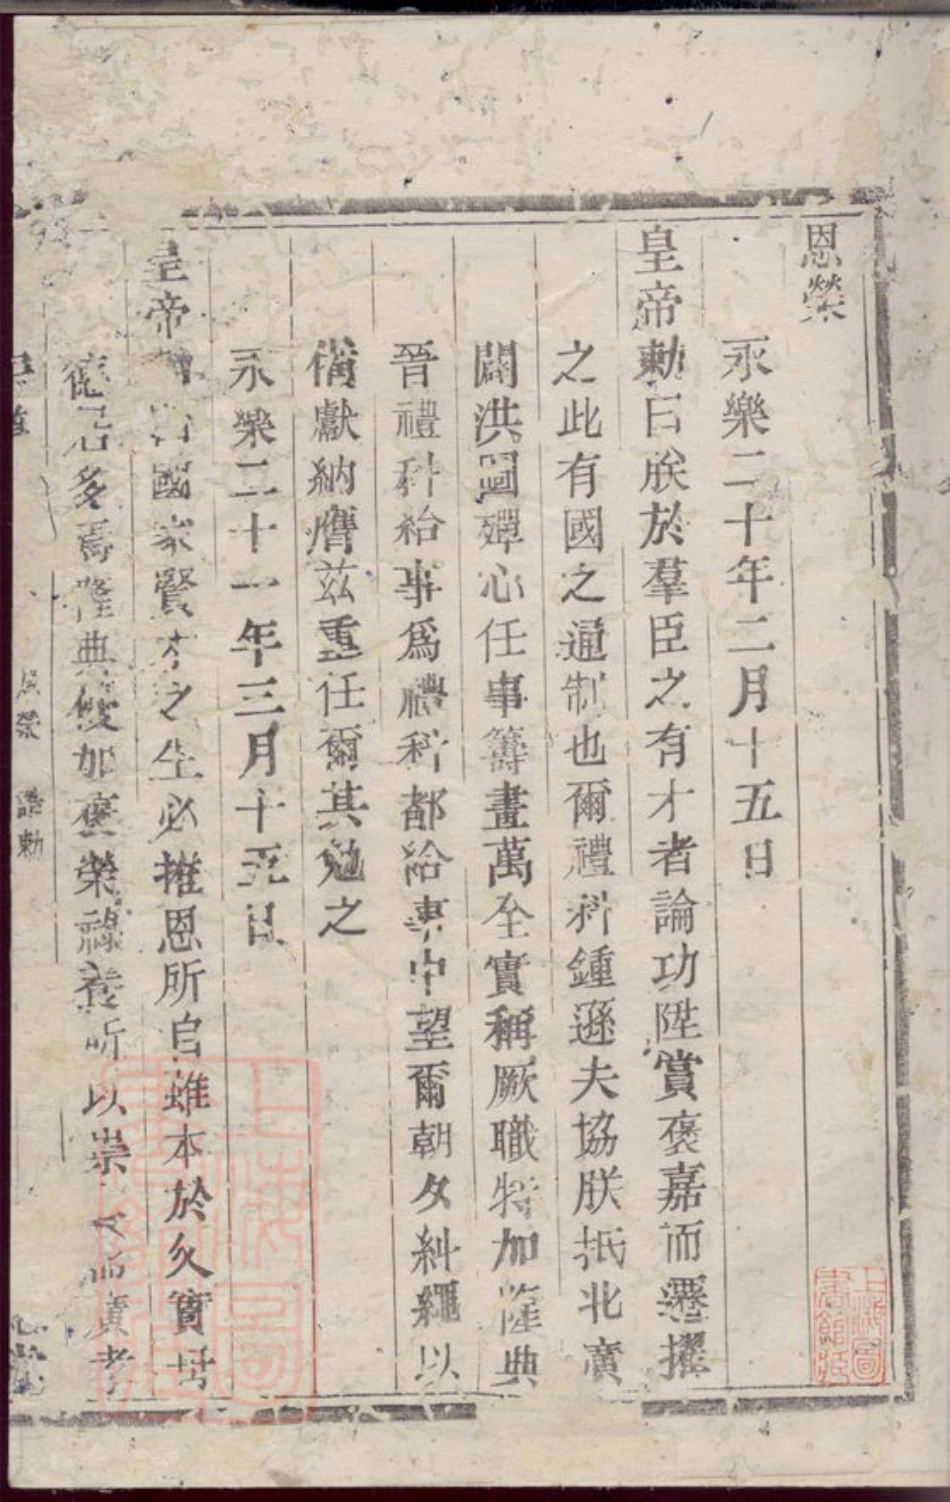 恩榮
永樂二十年二月十五日
皇帝勅曰朕於羣臣之有才者論功陞賞褒嘉而遷擢
之此有國之通制也爾禮科鍾遜夫協朕抵北廣
闢洪圖殫心任事籌畫萬全實稱厥職特加隆典
晉禮科給事爲禮科都給事中望爾朝夕糾繩以
備獻納膺茲重任爾其勉之
永樂二十一年三月十五日
皇帝 國家賢才之生必推恩所自雖本於父實
德居多焉隆典優加褒榮祿養所以崇 廣孝
恩榮 誥勅
上海圖書館藏
上海圖書館藏